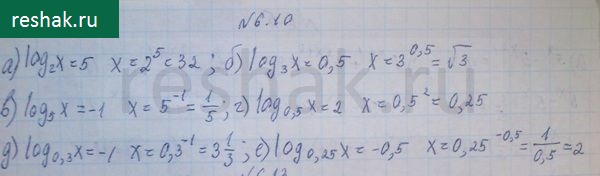 reshak.ru
№6.10
а) log₂x=5 x=2⁵=32 ; б) log₃x=0,5 x=3^0,5=√3
в) log₅x=-1 x=5⁻¹=1/5; г) log₀,₅x=2 x=0,5²=0,25
д) log₀,₃x=-1 x=0,3⁻¹=3 1/3; е) log₀,₂₅x=-0,5 x=0,25^-0,5=1/0,5=2
reshak.ru